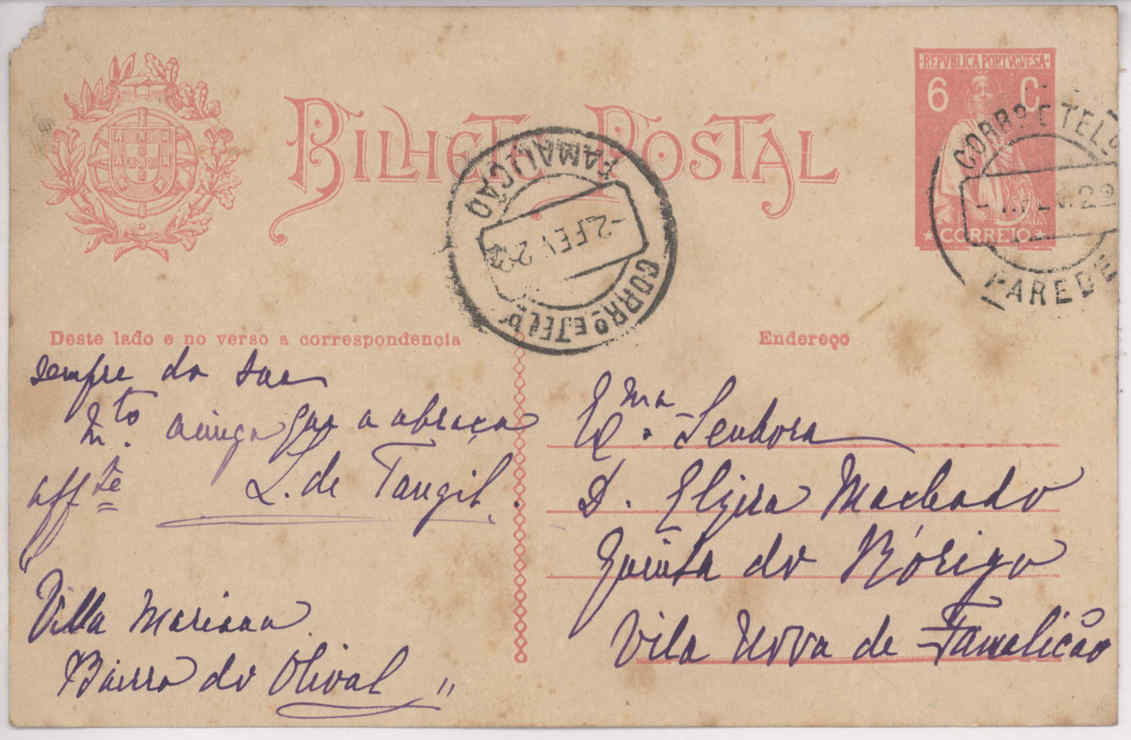 BILHETE POSTAL
REPVBLICA PORTVGVESA
6 C.
CORREIO
CORRº E TELº
PAREDE
FAMALICÃO
-2.FEV.23
CORRº E TELº
Deste lado e no verso a correspondencia
Endereço
sempre da sua
Mto. amiga que a abraça
affte
L. de Tangil.
Villa Mariana
Bairro do Olival "
Exma. Senhora
D. Elzira Machado
Quinta do
Vila Nova de Famalicão